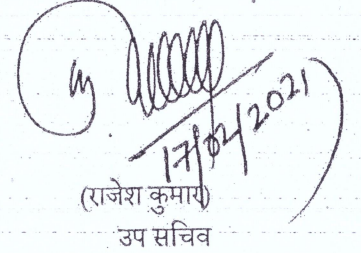 17/02/2021
(राजेश कुमार)
उप सचिव